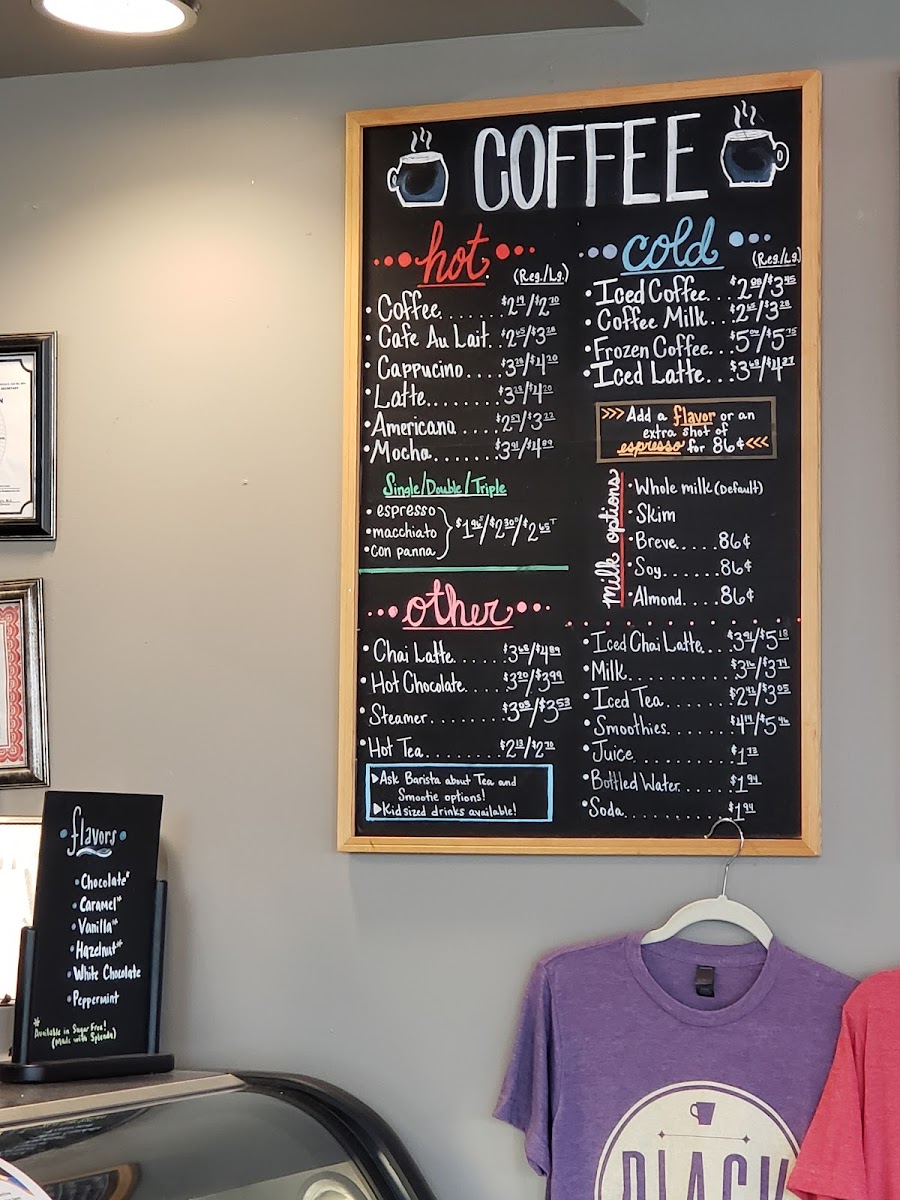 COFFEE
hot
(Reg./Lg.)
• Coffee...... $2.19/$2.70
• Cafe Au Lait.. $2.65/$3.28
• Cappucino.... $3.28/$4.20
• Latte........ $3.28/$4.20
• Americana.... $2.59/$3.22
• Mocha........ $3.91/$4.89
Single/Double/Triple
• espresso
• macchiato
• con panna
$1.96 S/$2.30 D/$2.65 T
other
• Chai Latte...... $3.68/$4.89
• Hot Chocolate..... $3.20/$3.99
• Steamer........ $3.05/$3.53
• Hot Tea........ $2.13/$2.70
▶Ask Barista about Tea and
Smootie options!
▶Kid sized drinks available!
cold
(Reg./Lg.)
• Iced Coffee... $2.88/$3.45
• Coffee Milk... $2.65/$3.28
• Frozen Coffee... $5.06/$5.75
• Iced Latte... $3.68/$4.27
>>> Add a flavor or an
extra shot of
espresso for 86¢ <<<
milk options
• Whole milk (Default)
• Skim
• Breve..... 86¢
• Soy....... 86¢
• Almond.... 86¢
• Iced Chai Latte... $3.91/$5.18
• Milk............ $3.16/$3.74
• Iced Tea........ $2.42/$3.05
• Smoothies....... $4.19/$5.46
• Juice........... $1.73
• Bottled Water...... $1.94
• Soda........... $1.94
• flavors •
• Chocolate*
• Caramel*
• Vanilla*
• Hazelnut*
• White Chocolate
• Peppermint
*
Available in Sugar Free!
(Made with Splenda)
BLACK